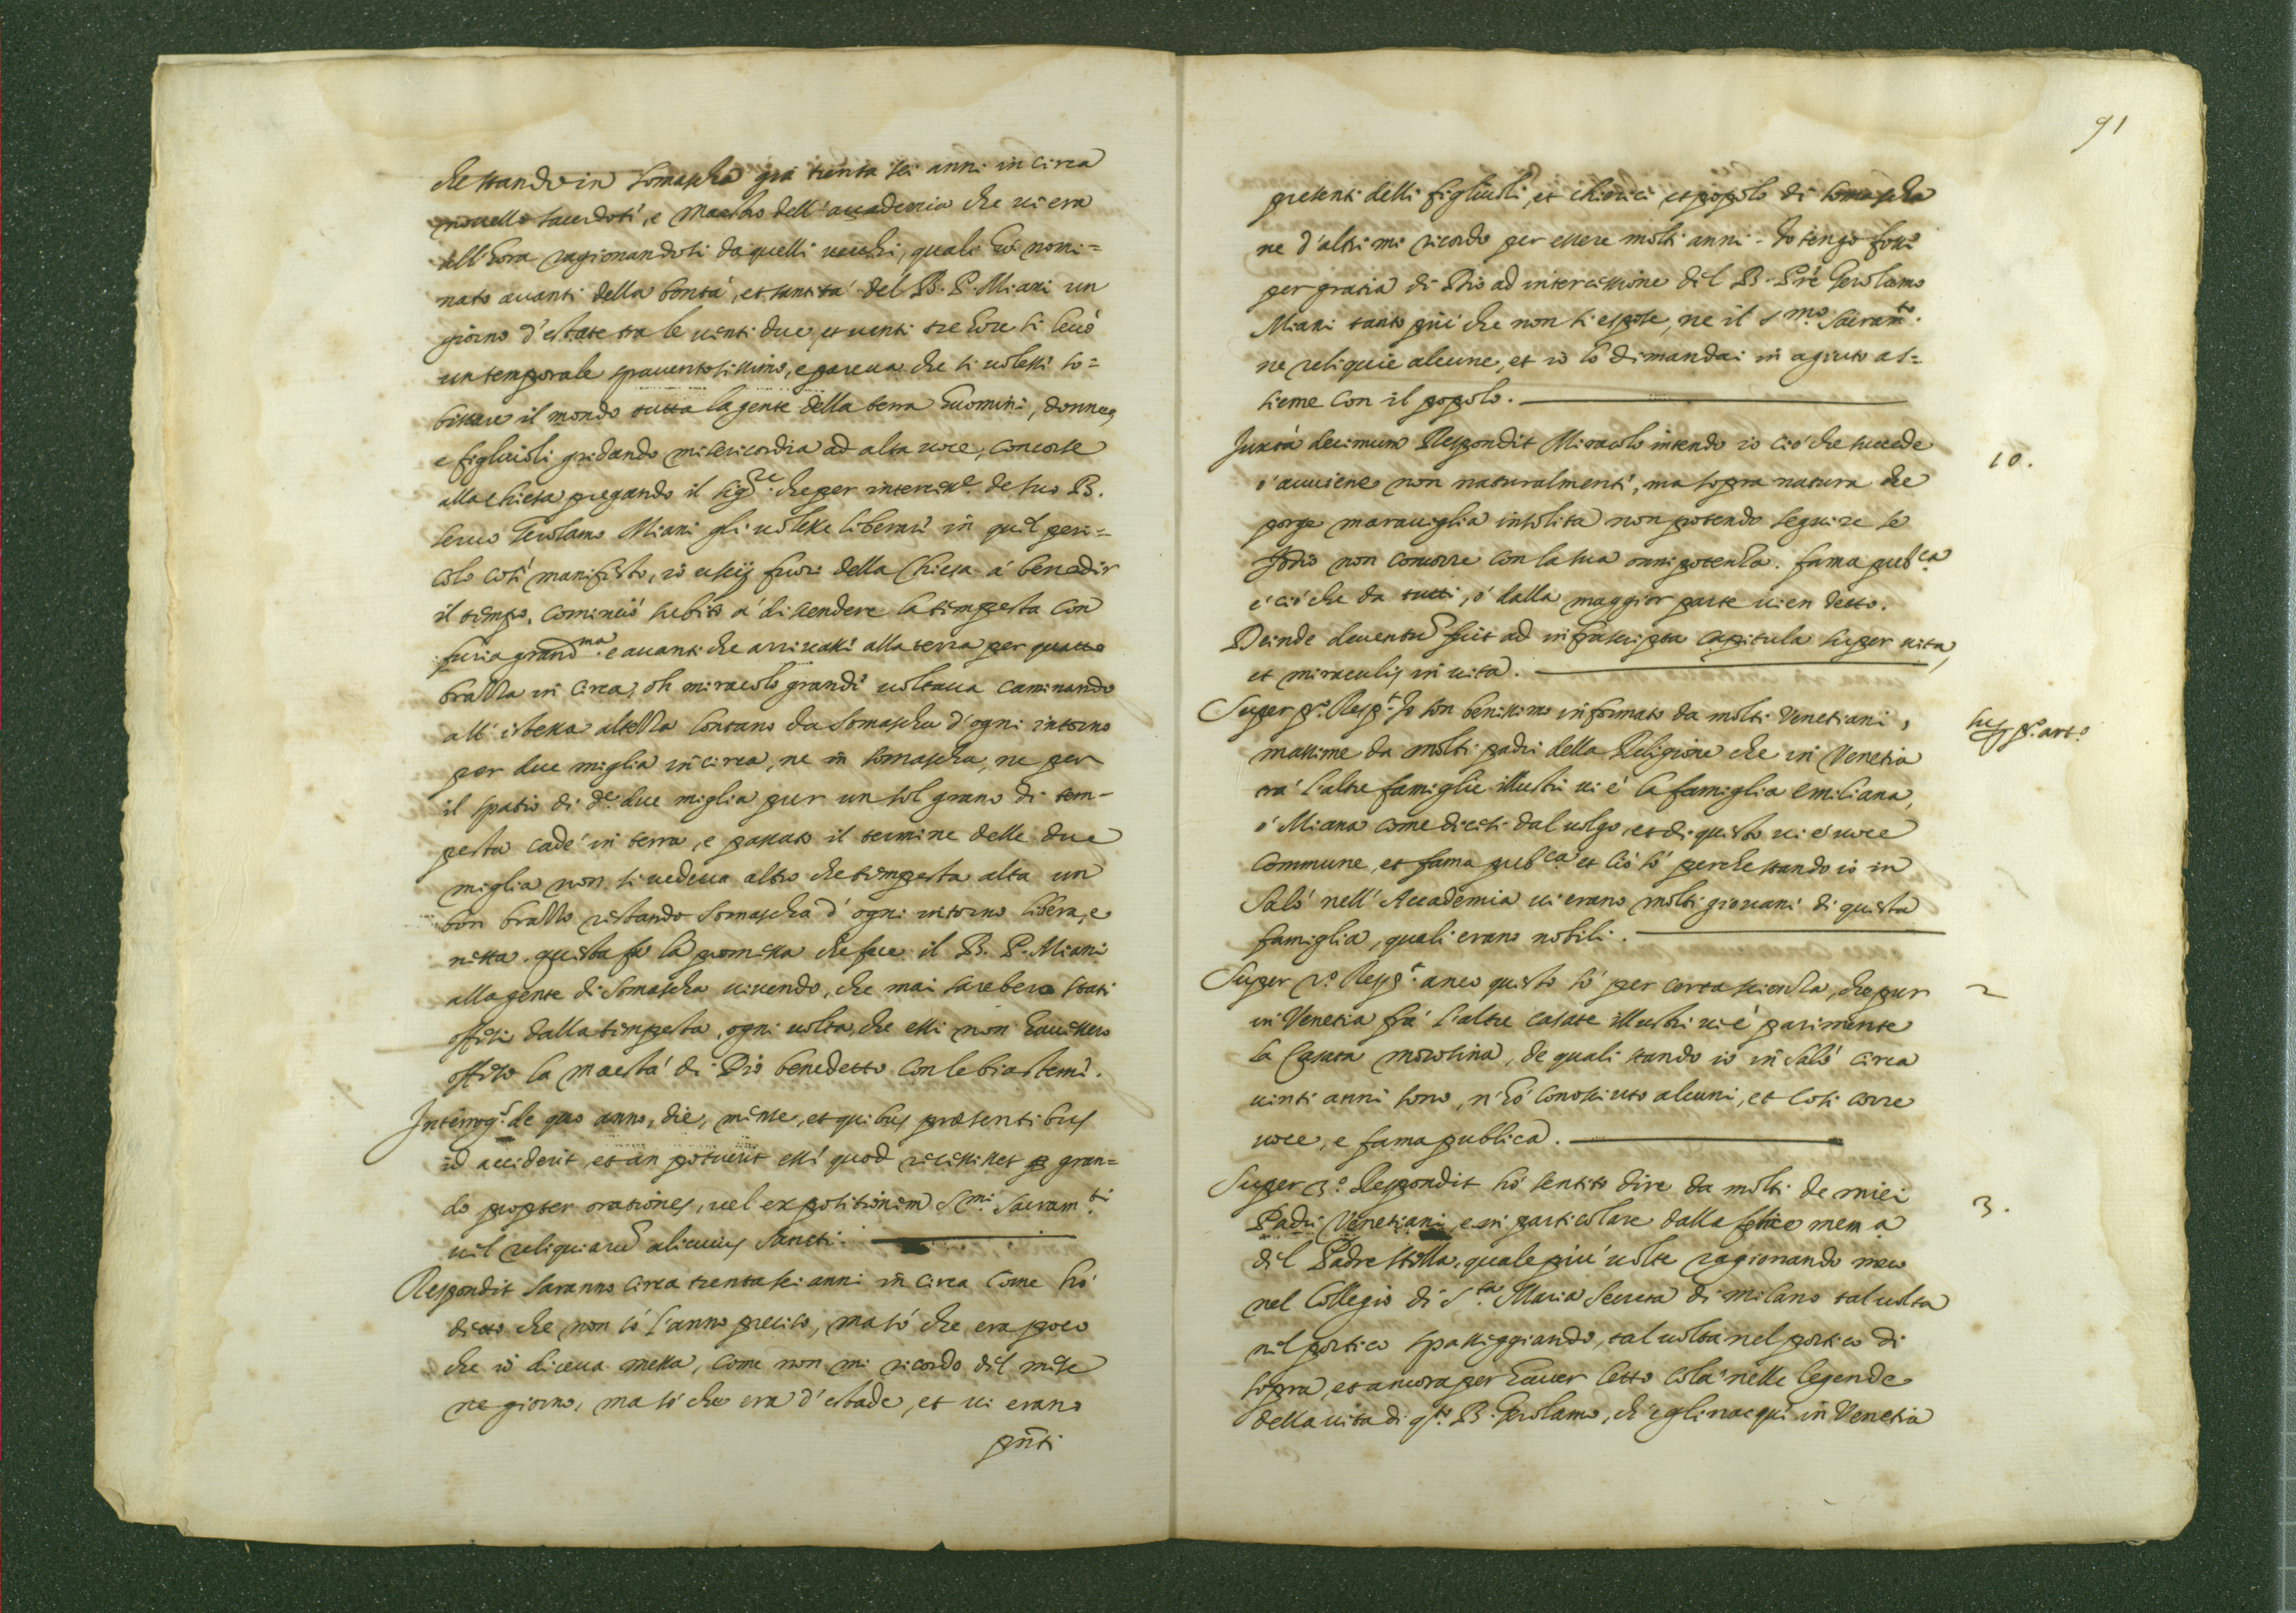 che stando in Somascha già trenta sei anni in circa
novello sacerdote, e Maestro dell'accademia che vi era
all'hora ragionandosi da quelli vecchi, quali hò nomi=
nato avanti della bontà, et santità del B. P. Miani un
giorno d'estate tra le venti due, et venti tre hore si levò
un temporale spaventosissimo, e pareva che si volessi so=
bissare il mondo tutta la gente della terra huomini, donne,
e figliuoli gridando misericordia ad alta voce, concorse
alla chiesa pregando il sig.re che per interces.e de suo B.
servo Gerolamo Miani gli volesse liberare in quel peri=
colo così manifesto, io uscij fuori della Chiesa à benedir
il tempo, cominciò subito à discendere la tempesta con
furia grand.ma e avanti che arrivassi alla terra per quatro
brazza in circa, oh miracolo grande voltava caminando
all'istessa altezza lontano da Somascha d'ogni intorno
per due miglia in circa, ne in Somascha, ne per
il spatio di d.e due miglia pur un sol grano di tem-
pesta cadé in terra, e passato il termine delle due
miglia non si vedeva altro che tempesta alta un
bon brazzo restando Somascha d'ogni intorno libera, e
netta. questa fu la promessa che fece il B. P. Miani
alla gente di Somascha vivendo, che mai sarebero stati
offesi dalla tempesta, ogni volta, che essi non havessero
offeso la maestà di Dio benedetto con le biasteme.
Interrog.s de quo anno, die, mense, et quibus presentibus
id acciderit, et an potuerit esse quod recessisset gran=
do propter orationes, vel expositionem S.mi Sacram.ti
vel reliquiarũ alicuius Sancti.
Respondit saranno circa trenta sei anni in circa come hò
detto che non sò l'anno preciso, ma sò che era poco
che io diceva messa, come non mi ricordo del mese
ne giorno, ma sò che era d'estade, et vi erano
pñti
91
presenti delli figliuoli, et chierici, et popolo di Somascha
ne d'altri mi ricordo per essere molti anni. Io tengo fosse
per gratia di Dio ad intercessione del B. Prè Gerolamo
Miani tanto più che non si espose, ne il S.mo Sacram.to
ne reliquie alcune, et io lo dimandai in agiuto as=
sieme con il popolo.
Juxta decimum Respondit Miracolo intendo io ciò che succede
ò avviene non naturalmente, ma sopra natura che
porge maraviglia insolita non potendo seguire se
Iddio non concorre con la sua onnipotenza. fama pub.ca
è ciò che da tutti, ò dalla maggior parte vien detto.
10.
Deinde deventũ fuit ad infrascripta capitula super vita,
et miraculis in vita.
Super p.o Resp.t Io son benissimo informato da molti Venetiani,
massime da molti padri della Religione che in Venetia
trà l'altre famiglie illustri vi è la famiglia Emiliana,
ò Miana come dicesi dal volgo, et di questo vi è voce
commune, et fama pub.ca et ciò sò perche stando io in
Salò nell'Accademia vi erano molti giovani di questa
famiglia, quali erano nobili.
sup. p.o art.o
Super 2.o Resp.t anco questo sò per certa scienza, che pur
in Venetia frà l'altre casate illustri vi è parimente
la casata morosina, de quali stando io in Salò circa
vinti anni sono, n'hò conosciuto alcuni, et così corre
voce, e fama publica.
2
Super 3.o Respondit hò sentito dire da molti de miei
Padri Venetiani, e in particolare dalla felice mem.a
del Padre Stella, quale più volte ragionando meco
nel Collegio di S.ta Maria Secreta di Milano tal volta
nel portico spasseggiando, tal volta nel portico di
sopra, et ancora per haver letto colà nelle legende
della vita di q.to B. Gerolamo, ch'egli nacque in Venetia
3.